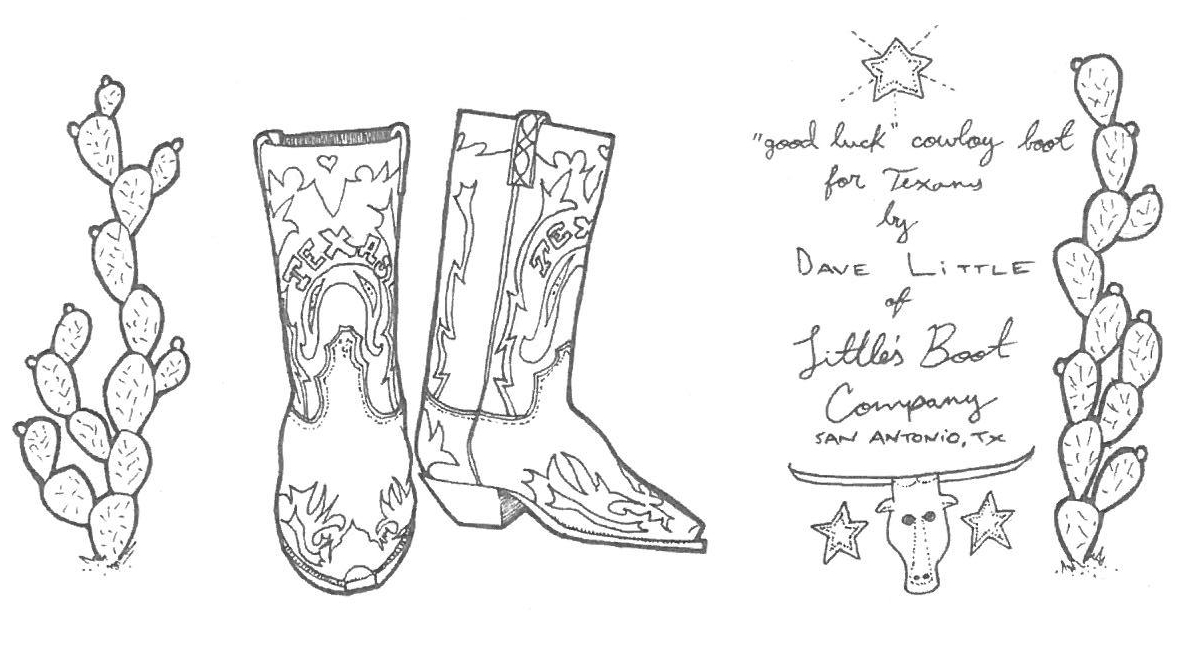 TEXAS
TEX
"good luck" cowboy boot
for Texans
by
DAVE LITTLE
of
Little's Boot
Company
SAN ANTONIO, TX